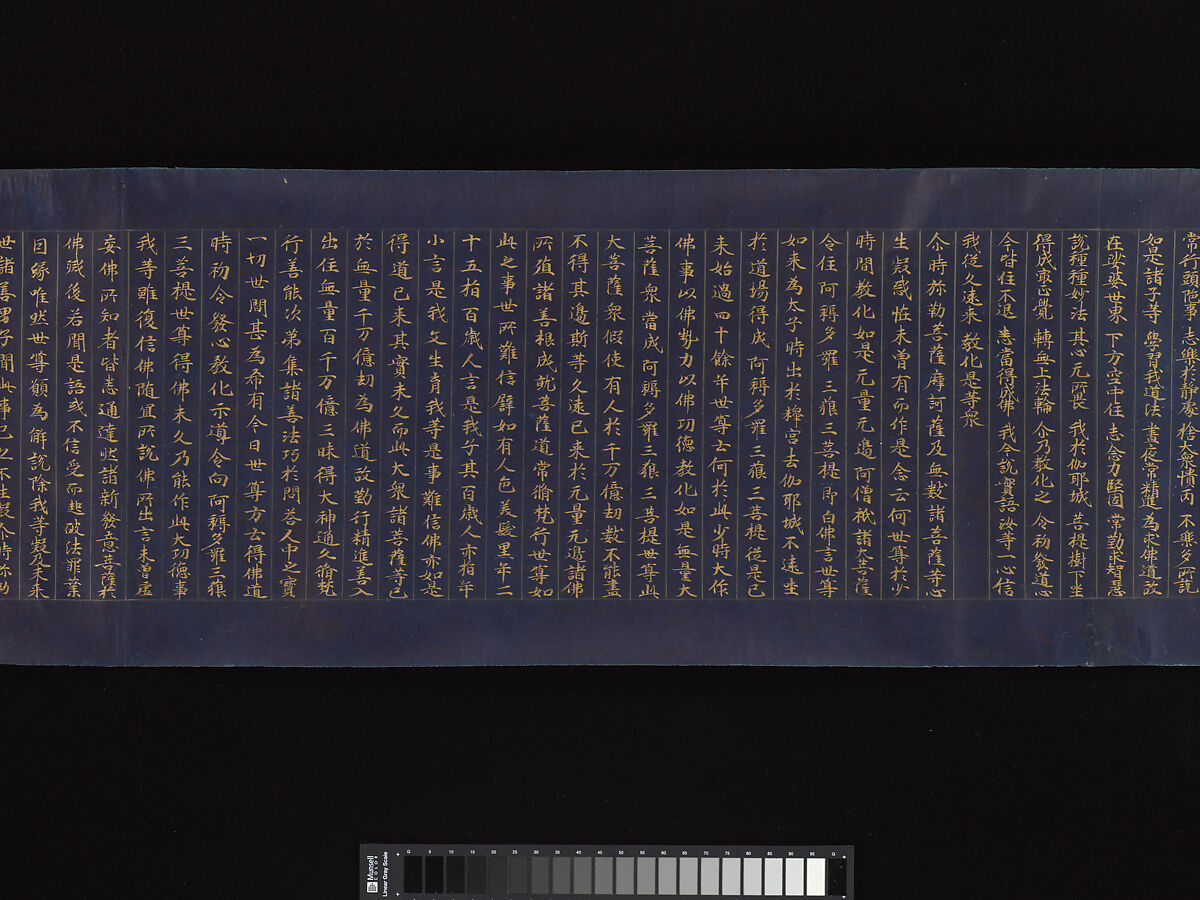 常行頭陀事 志樂於靜處 捨大衆憒丙 不樂多所說
如是諸子等 學習我道法 晝夜常精進 為求佛道故
在娑婆世界 下方空中住 志念力堅固 常勤求智慧
說種種妙法 其心无所畏 我於伽耶城 菩提樹下坐
得成最正覺 轉無上法輪 尒乃教化之 令初發道心
今皆住不退 悉當得成佛 我今說實語 汝等一心信
我從久遠來 教化是等衆
尒時弥勒菩薩摩訶薩及無數諸菩薩等心
生疑惑恠未曾有而作是念云何世尊於少
時間教化如是无量无邊阿僧祇諸大菩薩
令住阿耨多羅三藐三菩提即白佛言世尊
如来為太子時出於釋宮去伽耶城不遠坐
於道場得成阿耨多羅三藐三菩提從是已
来始過四十餘年世尊云何於此少時大作
佛事以佛勢力以佛功德教化如是無量大
菩薩衆當成阿耨多羅三藐三菩提世尊此
大菩薩衆假使有人於千万億劫數不能盡
不得其邊斯等久遠已来於无量无邊諸佛
所殖諸善根成就菩薩道常脩梵行世尊如
此之事世所難信譬如有人色美髮黑年二
十五指百歲人言是我子其百歲人亦指年
小言是我父生育我等是事難信佛亦如是
得道已来其實未久而此大衆諸菩薩等已
於無量千万億劫為佛道故勤行精進善入
出住無量百千万億三昧得大神通久脩梵
行善能次弟集諸善法巧於問荅人中之寶
一切世間甚為希有今日世尊方云得佛道
時初令發心教化示導令向阿耨多羅三藐
三菩提世尊得佛未久乃能作此大功德事
我等雖復信佛隨宜所說佛所出言未曾虛
妄佛所知者皆悉通達然諸新發意菩薩於
佛滅後若聞是語或不信受而起破法罪業
因緣唯然世尊願為解說除我等疑及未来
世諸善男子聞此事已亦不生疑尒時弥勒
Munsell COLOR
Linear Gray Scale
G 5 10 15 20 25 30 35 40 45 50 55 60 65 70 75 80 85 90 95 G